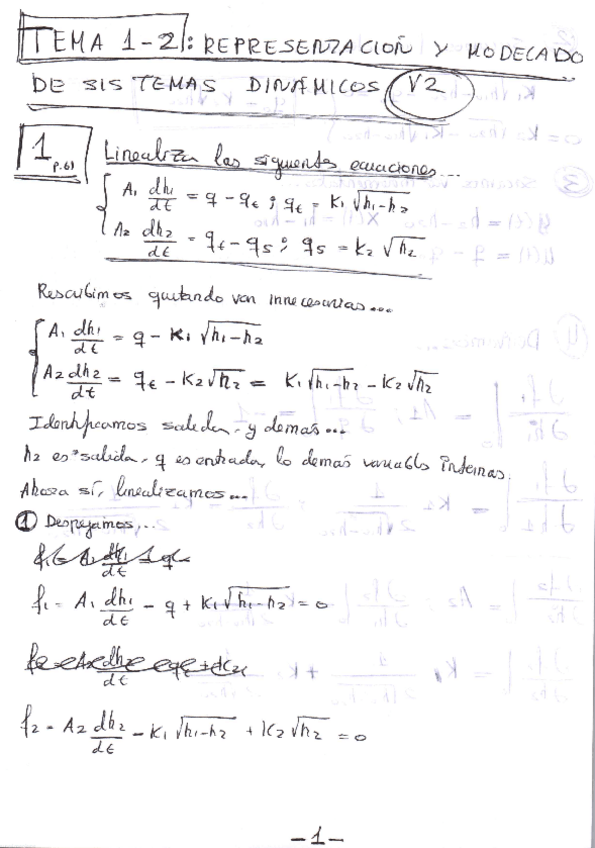 TEMA 1-2: REPRESENTACIÓN Y MODELADO
DE SISTEMAS DINÁMICOS V2
1 p.61 Linealizar las siguientes ecuaciones...
A₁ dh₁/dt = q - qₜ ; qₜ = K₁√(h₁-h₂)
A₂ dh₂/dt = qₜ - q₅ ; q₅ = K₂√h₂
Rescribimos quitando var innecesarias...
A₁ dh₁/dt = q - K₁√(h₁-h₂)
A₂ dh₂/dt = qₜ - K₂√h₂ = K₁√(h₁-h₂) - K₂√h₂
Identificamos salida, y demás...
h₂ es salida, q es entrada, lo demás variables internas.
Ahora sí, linealizamos...
① Despejamos...
f₁ = A₁ dh₁/dt - q + K₁√(h₁-h₂) = 0
f₂ = A₂ dh₂/dt - K₁√(h₁-h₂) + K₂√h₂ = 0
-1-